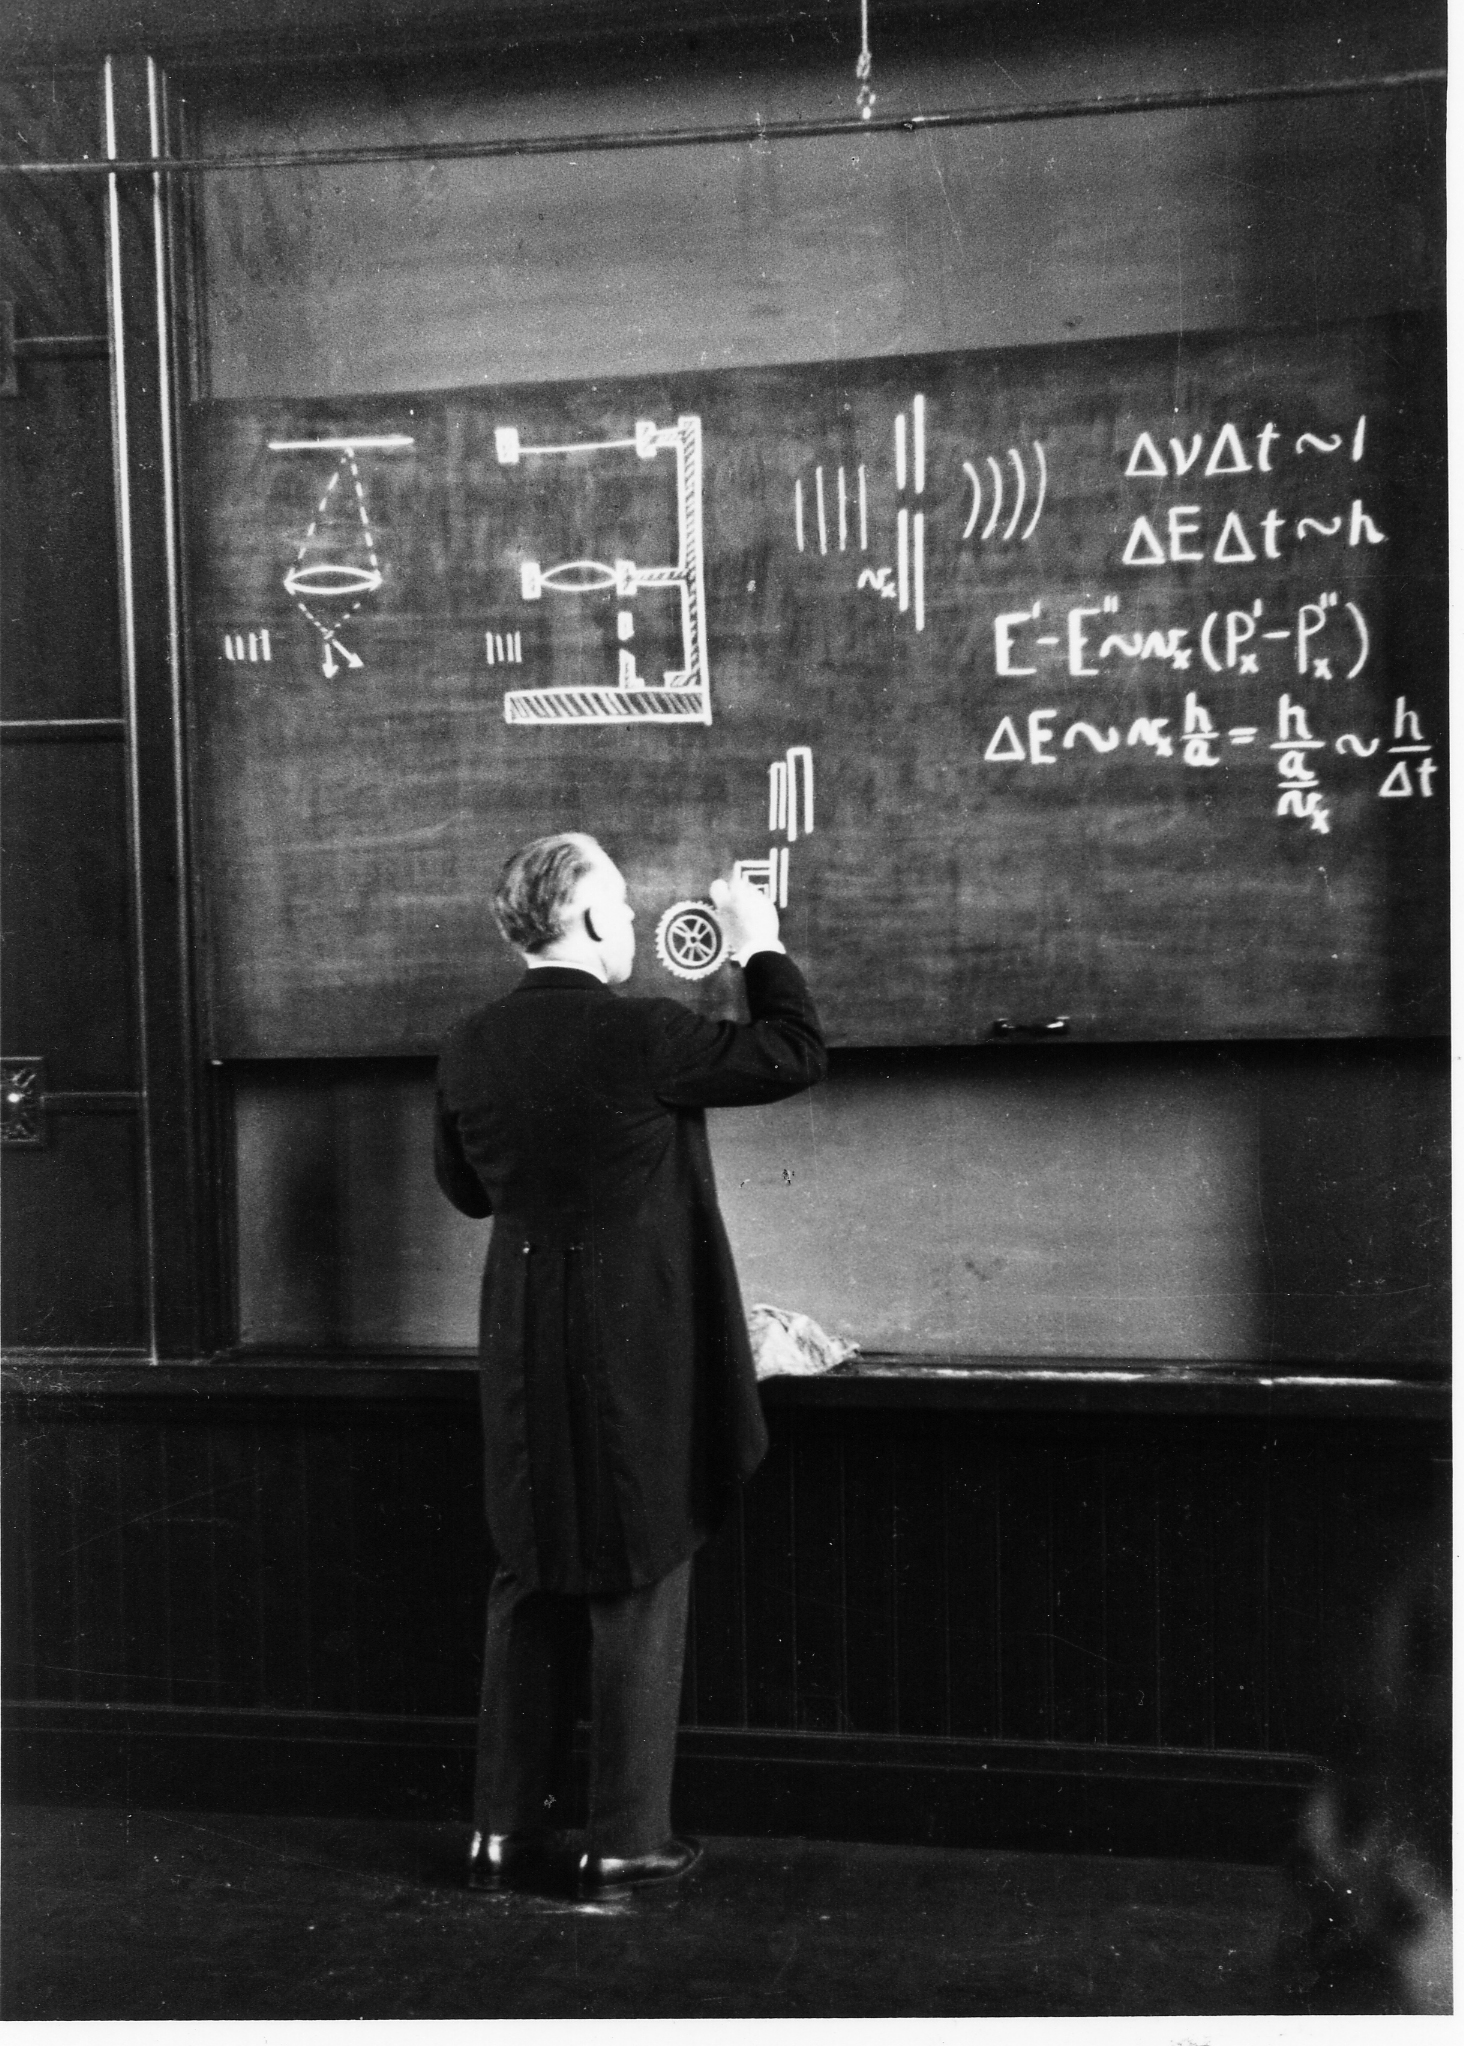 ΔνΔt ~ 1
ΔEΔt ~ h
vₓ
E′ - E″ ~ vₓ(Pₓ′ - Pₓ″)
ΔE ~ vₓ h/a = h/(a/vₓ) ~ h/Δt